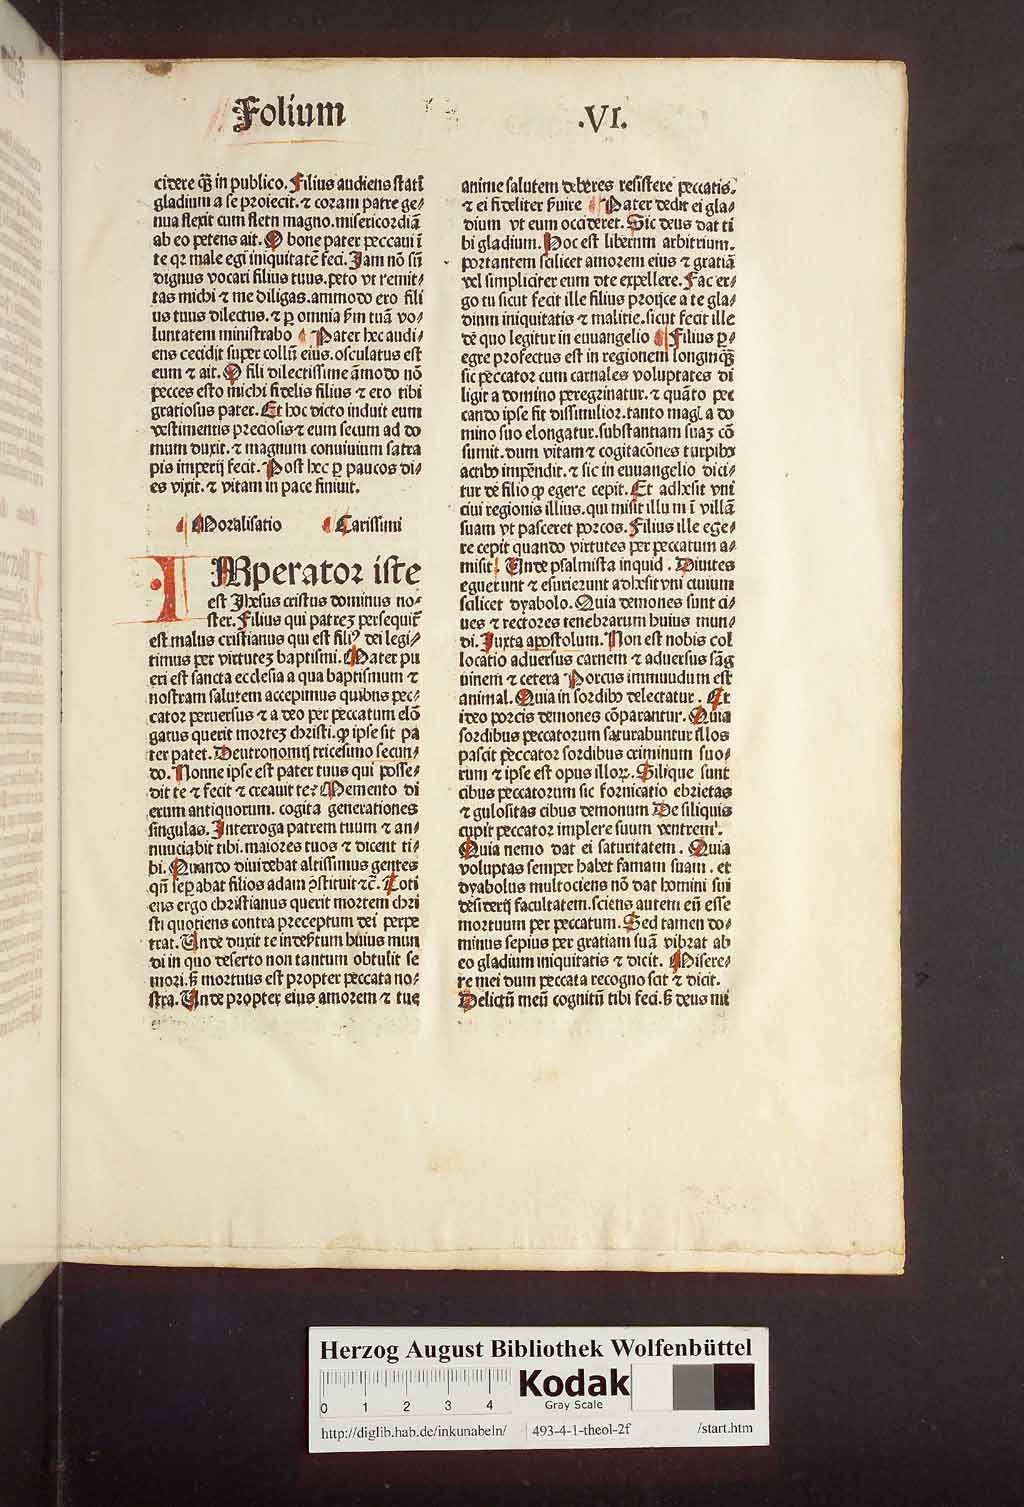 Folium .VI.
cidere qȝ in publico. Filius audiens statī
gladium a se proiecit. ⁊ coram patre ge⸗
nua flexit cum fletu magno. misericordiā
ab eo petens ait. O bone pater peccaui ī
te qr male egi iniquitatē feci. Jam nō sū
dignus vocari filius tuus. peto vt remit⸗
tas michi ⁊ me diligas. ammodo ero fili
us tuus dilectus. ⁊ ꝑ omnia ẜm tuā vo⸗
luntatem ministrabo Pater hec audi⸗
ens cecidit super collū eius. osculatus est
eum ⁊ ait. O fili dilectissime āmodo nō
pecces esto michi fidelis filius ⁊ ero tibi
gratiosus pater. Et hoc dicto induit eum
vestimentis preciosis ⁊ eum secum ad do
mum duxit. ⁊ magnum conuiuium satra
pis imperij fecit. Post hec ꝑ paucos di⸗
es vixit. ⁊ vitam in pace finiuit.
Moralisatio Carissimi
IMperator iste
est Jhesus cristus dominus no⸗
ster. Filius qui patreȝ persequit̄
est malus cristianus qui est fili⁹ dei legi⸗
timus per virtuteȝ baptismi. Mater pu
eri est sancta ecclesia a qua baptismum ⁊
nostram salutem accepimus quibus pec⸗
cator peruersus ⁊ a deo per peccatum elō
gatus querit morteȝ christi. qȝ ipse sit pa
ter patet. Deutronomij tricesimo secun⸗
do. Nonne ipse est pater tuus qui posse⸗
dit te ⁊ fecit ⁊ creauit te? Memento di
erum antiquorum. cogita generationes
singulas. Interroga patrem tuum ⁊ an⸗
nunciabit tibi. maiores tuos ⁊ dicent ti⸗
bi. Quando diuidebat altissimus gentes
qn̄ seꝑabat filios adam ꝯstituit ⁊c̄. Toti
ens ergo christianus querit mortem chri
sti quotiens contra preceptum dei perpe
trat. Unde duxit te in deẜtum huius mun
di in quo deserto non tantum obtulit se
mori. ẜ mortuus est propter peccata no⸗
stra. Unde propter eius amorem ⁊ tue
anime salutem deberes resistere peccatis.
⁊ ei fideliter ẜuire Pater dedit ei gla⸗
dium vt eum occideret. Sic deus dat ti
bi gladium. Hoc est liberum arbitrium.
portantem scilicet amorem eius ⁊ gratiā
vel simpliciter eum a te expellere. Fac er⸗
go tu sicut fecit ille filius proijce a te gla⸗
dium iniquitatis ⁊ malitie. sicut fecit ille
de quo legitur in euuangelio Filius ꝑ⸗
egre profectus est in regionem longinqȝ
sic peccator cum carnales voluptates di
ligit a domino peregrinatur. ⁊ quāto pec
cando ipse fit dissimilior. tanto magl a do
mino suo elongatur. substantiam suaȝ cō
sumit. dum vitam ⁊ cogitacōnes turpibȝ
actibȝ impendit. ⁊ sic in euuangelio dici⸗
tur de filio qȝ egere cepit. Et adhesit vni
ciui regionis illius. qui misit illum ī villā
suam vt pasceret porcos. Filius ille ege⸗
re cepit quando virtutes per peccatum a⸗
misit. Unde psalmista inquid. Diuites
eguerunt ⁊ esurierunt adhesit vni ciuium
scilicet dyabolo. Quia demones sunt ci⸗
ues ⁊ rectores tenebrarum huius mun⸗
di. Juxta apostolum. Non est nobis col
locatio aduersus carnem ⁊ aduersus sāg
uinem ⁊ cetera Porcus immundum est
animal. Quia in sordibȝ delectatur. Et
ideo porcis demones cōparantur. Quia
sordibus peccatorum saturabuntur illos
pascit peccator sordibus criminum suo⸗
rum ⁊ ipse est opus illoꝝ. Silique sunt
cibus peccatorum sic fornicatio ebrietas
⁊ gulositas cibus demonum De siliquis
cupit peccator implere suum ventrem.
Quia nemo dat ei saturitatem. Quia
voluptas semper habet famam suam. et
dyabolus multociens nō dat homini sui
desiderij facultatem. sciens autem eū esse
mortuum per peccatum. Sed tamen do⸗
minus sepius per gratiam suā vibrat ab
eo gladium iniquitatis ⁊ dicit. Misere⸗
re mei dum peccata recognoscat ⁊ dicit.
Delictū meū cognitū tibi feci. ẜ deus mi
Herzog August Bibliothek Wolfenbüttel
0 1 2 3 4
Kodak
Gray Scale
http://diglib.hab.de/inkunabeln/ 493-4-1-theol-2f /start.htm